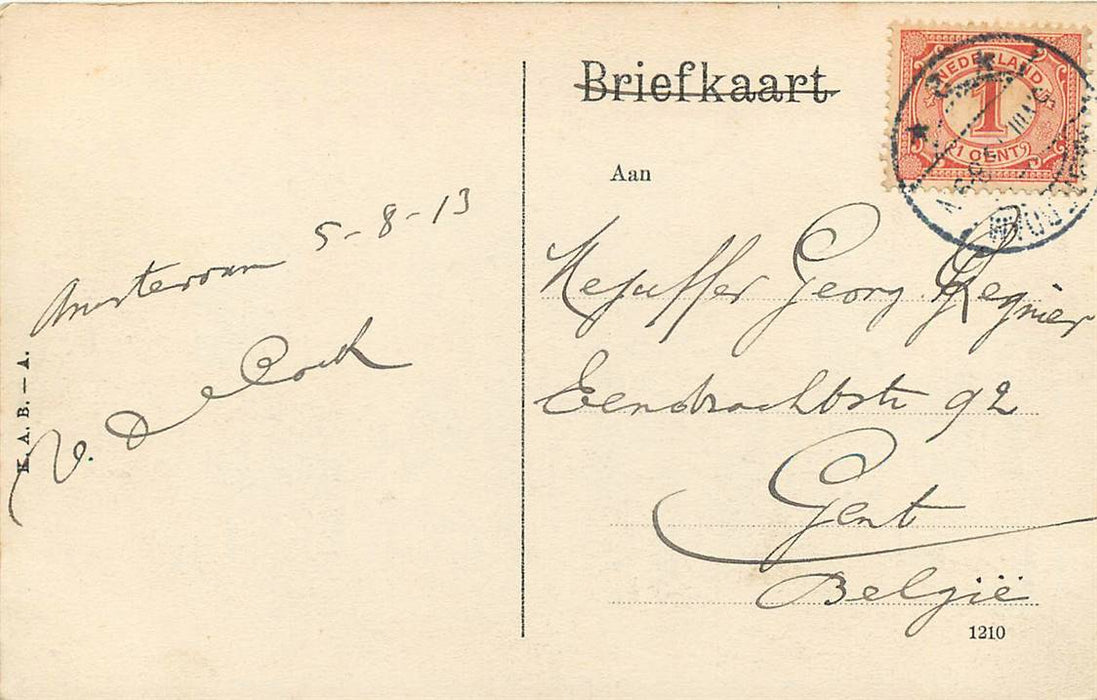 Briefkaart
NEDERLAND
1
1 CENT
Aan
5-8-13
Amsterdam
V. De Cock
K. A. B. — A.
Mejuffer Georg. Regnier
Eendrachtstr 92
Gent
België
1210